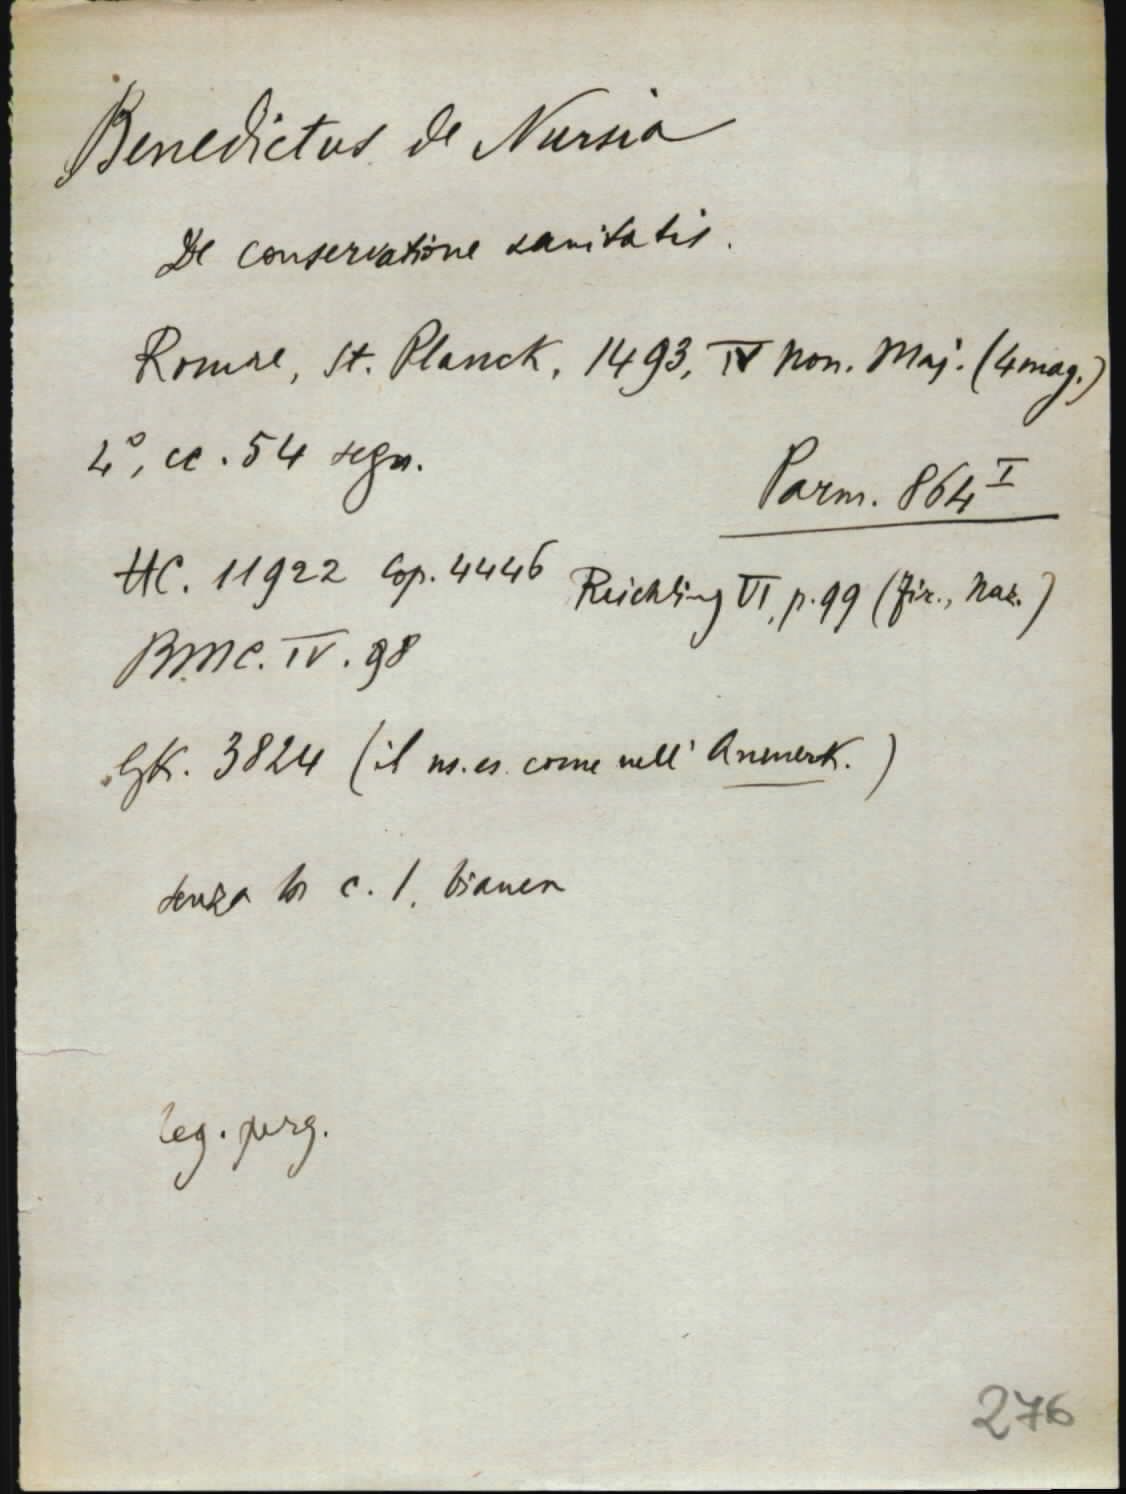 Benedictus de Nursia
De conservatione sanitatis.
Romae, St. Planck, 1493, IV Non. Maj. (4 mag.)
4°, cc. 54 segn.
Parm. 864 I
HC. 11922 Cop. 4446 Reichling VI, p. 99 (Fir., Naz.)
BMC. IV. 98
GK. 3824 (il ns. es. come nell' Anmerk.)
senza la c. 1. bianca
leg. perg.
276